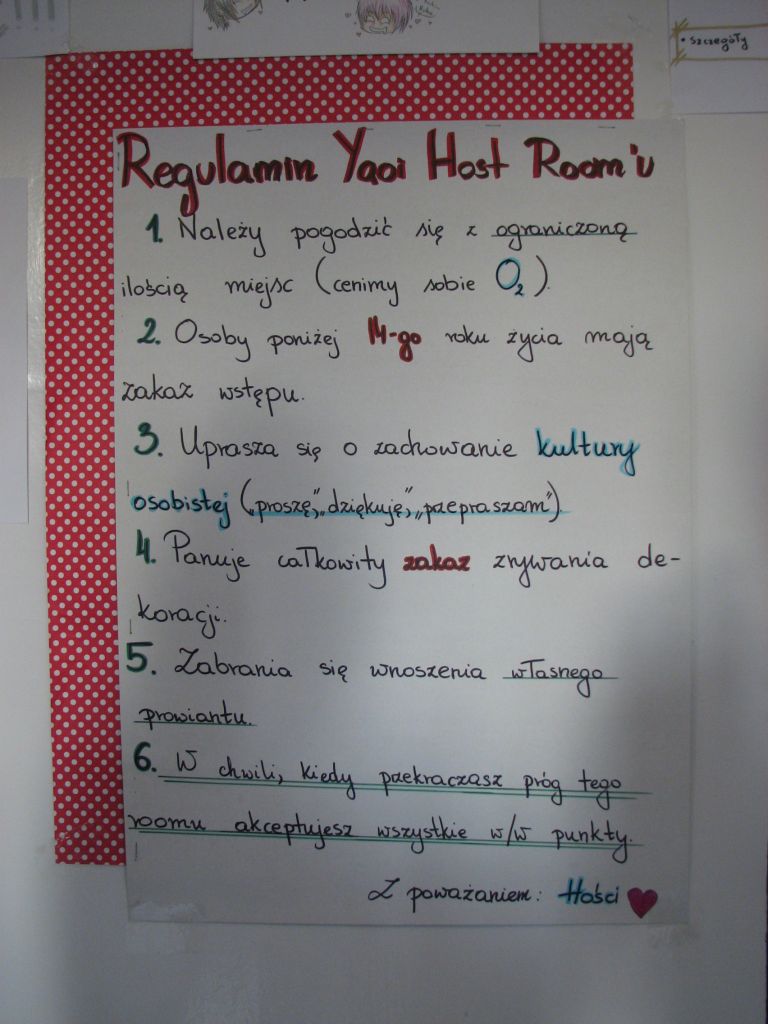 • szczegóły
Regulamin Yaoi Host Room'u
1. Należy pogodzić się z ograniczoną
ilością miejsc (cenimy sobie O₂).
2. Osoby poniżej 14-go roku życia mają
zakaz wstępu.
3. Uprasza się o zachowanie kultury
osobistej („proszę”, „dziękuję”, „przepraszam”)
4. Panuje całkowity zakaz zrywania de-
koracji.
5. Zabrania się wnoszenia własnego
prowiantu.
6. W chwili, kiedy przekraczasz próg tego
roomu akceptujesz wszystkie w/w punkty.
Z poważaniem: Hości ♥